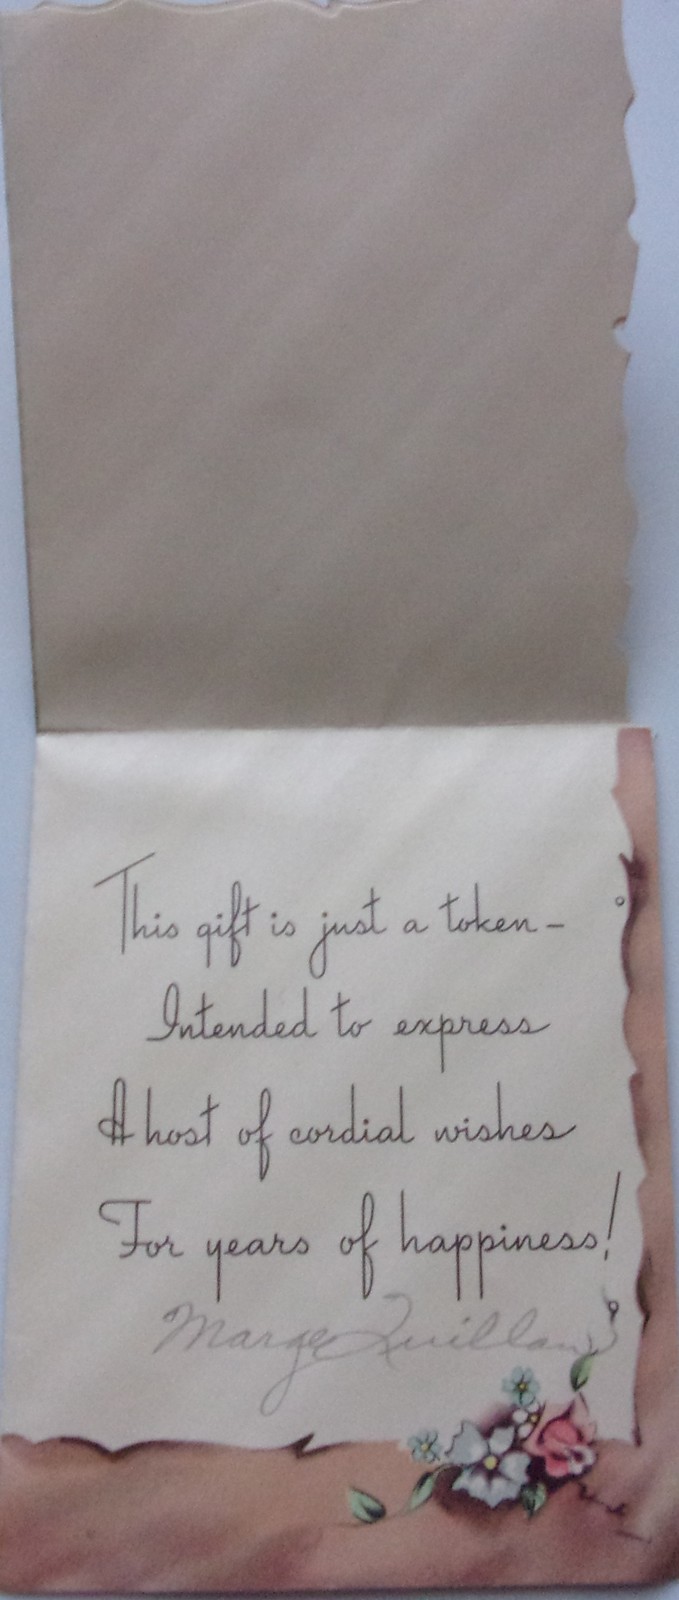 This gift is just a token—
Intended to express
A host of cordial wishes
For years of happiness!
Marge Quillan